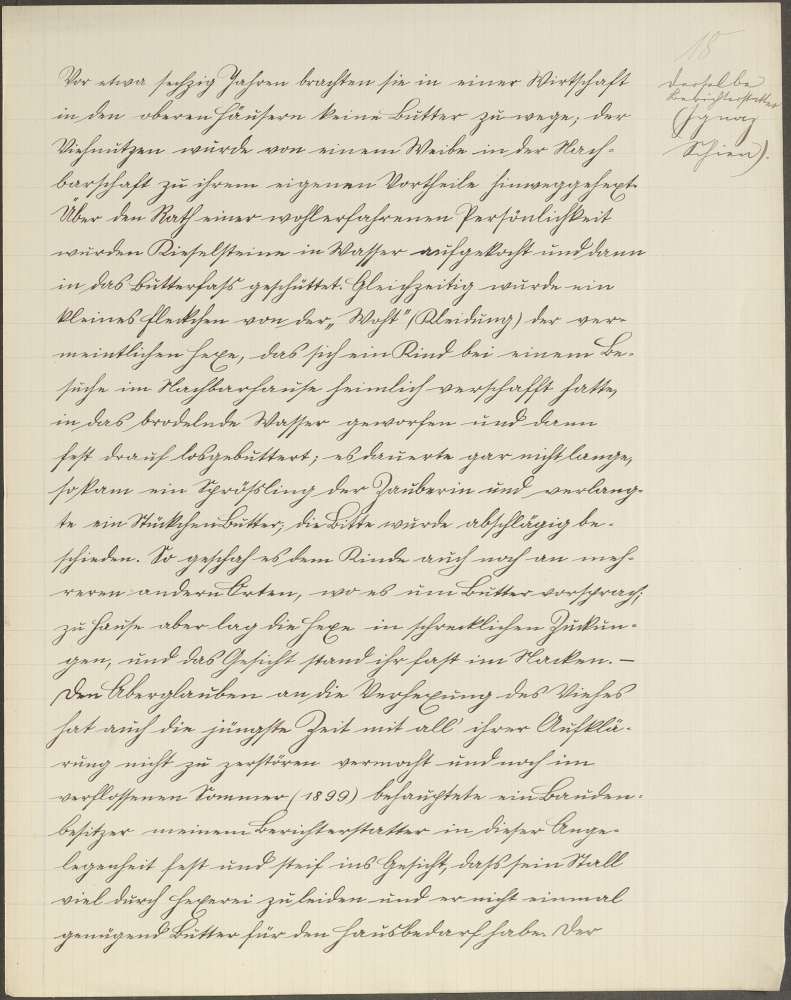 18
Vor etwa sechzig Jahren brachten sie in einer Wirtschaft
in den oberen Häusern keine Butter zu wege; der
Viehnutzen wurde von einem Weibe in der Nach-
barschaft zu ihrem eigenen Vortheile hinweggehext.
Über den Rath einer wohlerfahrenen Persönlichkeit
wurden Kieselsteine in Wasser aufgekocht und dann
in das Butterfass geschüttet. Gleichzeitig wurde ein
kleines Fleckchen von der „Woht" (Kleidung) der ver-
meintlichen Hexe, das sich ein Kind bei einem Be-
suche im Nachbarhause heimlich verschafft hatte,
in das brodelnde Wasser geworfen und dann
fest drauf losgebuttert; es dauerte gar nicht lange,
so kam ein Sprößling der Zauberin und verlang-
te ein Stückchen Butter; die Bitte wurde abschlägig be-
schieden. So geschah es dem Kinde auch noch an meh-
reren andern Orten, wo es um Butter vorsprach;
zu Hause aber lag die Hexe in schrecklichen Zuckun-
gen, und das Gesicht stand ihr fast im Nacken. —
Den Aberglauben an die Verhexung des Viehes
hat auch die jüngste Zeit mit all' ihrer Aufklä-
rung nicht zu zerstören vermocht und noch im
verflossenen Sommer (1899) behauptete ein Bauden-
besitzer meinem Berichterstatter in dieser Ange-
legenheit fest und steif ins Gesicht, dass sein Stall
viel durch Hexerei zu leiden und er nicht einmal
genügend Butter für den Hausbedarf habe. Der
derselbe
Berichterstatter
(Ignaz
Schien).